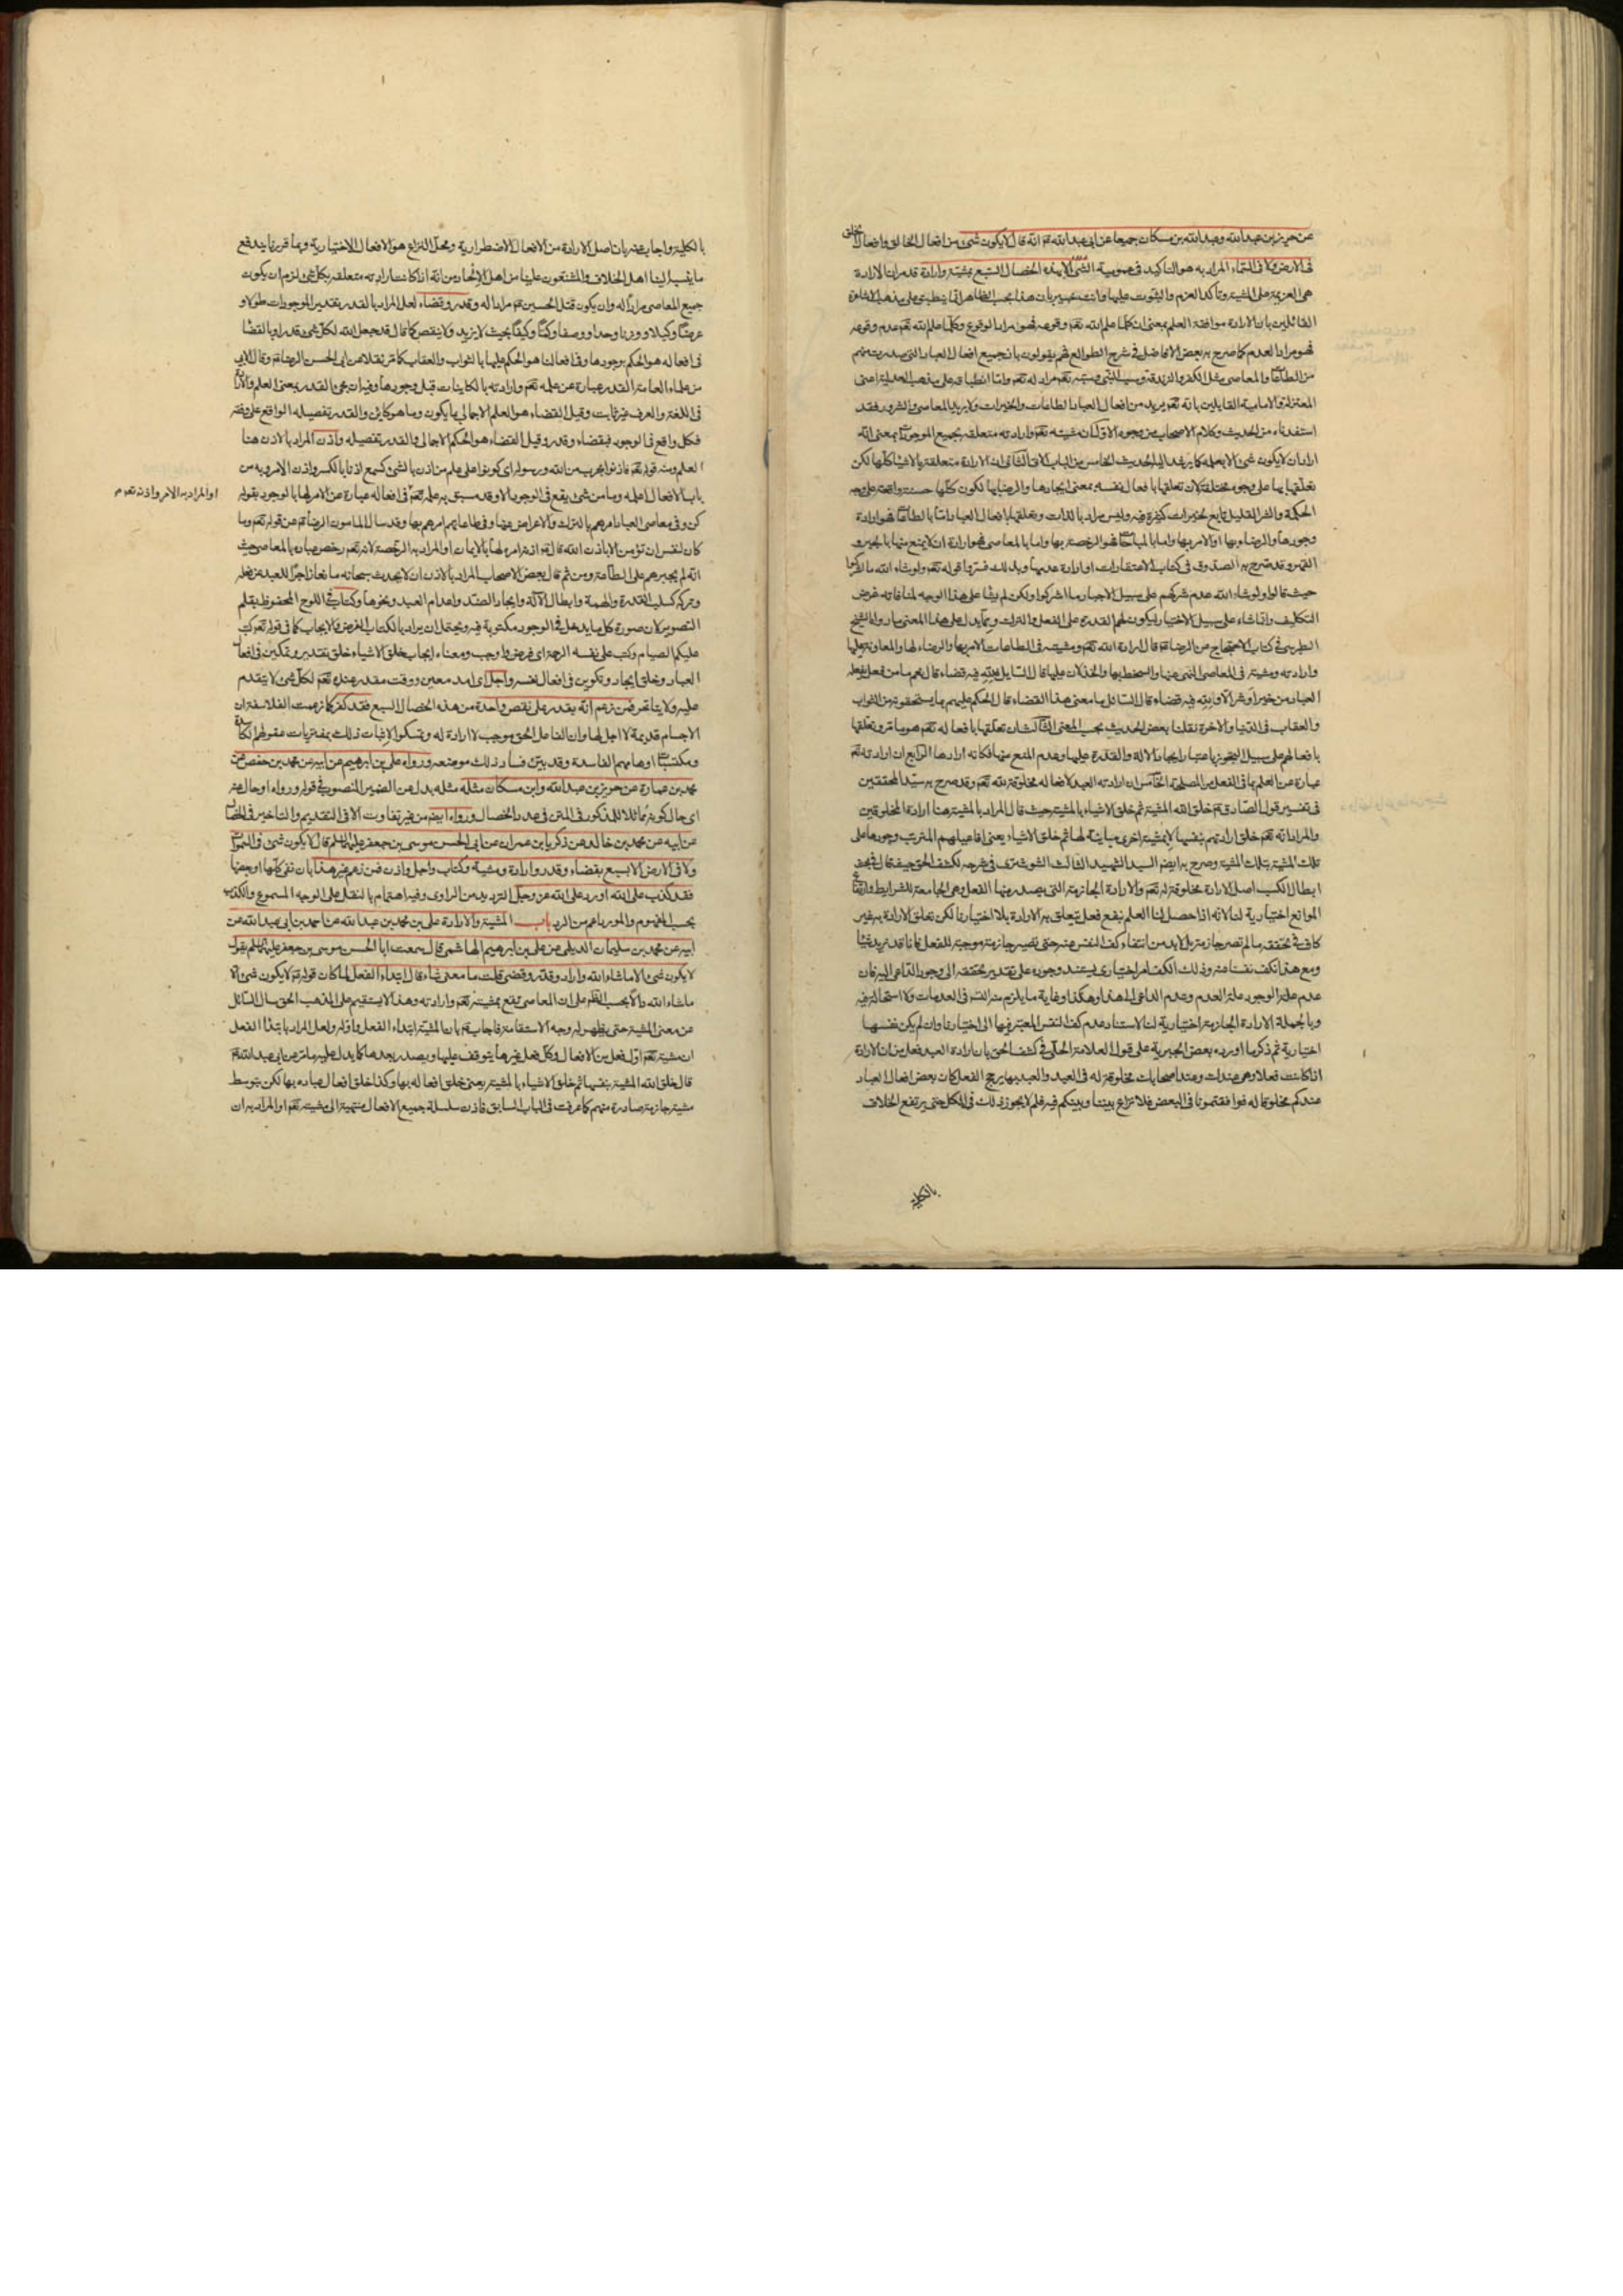 عن حريز بن عبد الله وعبد الله بن مسكان جميعا عن ابى عبد الله ع انه قال لا يكون شئ من افعال الخالق وافعال الخلق
فى الارض ولا فى السماء المراد به هو التاكيد فى عمومية الشئ الا بهذه الخصال السبع بمشية وارادة قد مر ان الارادة
هى العزيمة على المشية وتأكد العزم والثبوت عليها وانت خبير بان هذا بحسب الظاهر انما ينطبق على مذهب الاشاعرة
القائلين بان الارادة موافقة العلم بمعنى ان كلما علم الله تعم وقوعه فهو مراد الوقوع وكلما علم الله تعم عدم وقوعه
فهو مراد العدم كما صرح به بعض الافاضل فى شرح الطوالع فهم يقولون بان جميع افعال العباد التى صدرت منهم
من الطاعات والمعاصى مثل الكفر والزندقة وسب النبى وشتمه تعم مراد له تعم واما انطباقه على مذهب العدلية اعنى
المعتزلة والامامية القايلين بانه تعم يريد من افعال العباد الطاعات والخيرات ولا يريد المعاصى والشرور فقد
استفدناه من الحديث وكلام الاصحاب من وجوه الاول ان مشيته تعم وارادته متعلقه بجميع الموجودات بمعنى انه
اراد ان لا يكون شئ الا بعلمه كما يرشد اليه الحديث الخامس من الباب الاتى الثانى ان الارادة متعلقة بالاشياء كلها لكن
تعلقها بها على وجوه مختلفة لان تعلقها بافعال نفسه بمعنى ايجادها والرضا بها لكون كلها حسنة واقعة على وجه
الحكمة والشر القليل تابع لخيرات كثيرة فيه وليس مراد بالذات وتعلقها بافعال العباد اما بالطاعات فهو ارادة
وجودها والرضاء بها او الامر بها واما بالمباحات فهو الرخصة بها واما بالمعاصى فهو ارادة ان لا يمنع منها بالجبر و
القهر وقد صرح به الصدوق فى كتاب الاعتقادات او ارادة عدمها وبذلك فسروا قوله تعم ولو شاء الله ما اشركوا
حيث قالوا ولو شاء الله عدم شركهم على سبيل الاجبار ما اشركوا ولكن لم يشا على هذا الوجه لمنافاته غرض
التكليف وانما شاء على سبيل الاختيار ليكون لهم القدرة على الفعل والترك ومما يدل على هذا المعنى ما رواه الشيخ
الطبرسى فى كتاب الاحتجاج عن الرضا ع قال ارادة الله تعم ومشيته فى الطاعات الامر بها والرضاء لها والمعاونة عليها
وارادته ومشيته فى المعاصى النهى عنها والسخط بها والخذلان عليها قال السايل فلله فيه قضاء قال نعم ما من فعل يفعله
العباد من خير او شر الا ولله فيه قضاء قال السائل ما معنى هذا القضاء قال الحكم عليهم بما يستحقونه من الثواب
والعقاب فى الدنيا والاخرة نقلنا بعض الحديث بحسب المعنى الثالث ان تعلقها بافعاله تعم هو ما مر وتعلقها
بافعالهم على سبيل التجوز باعتبار ايجاد الالة والقدرة عليها وعدم المنع منها فكانه ارادها الرابع ان ارادته تعم
عبارة عن العلم بما فى الفعل من المصلحة الخامس ان ارادته العبد لافعاله مخلوقة لله تعم وقد صرح به سيد المحققين
فى تفسير قول الصادق ع خلق الله المشية ثم خلق الاشياء بالمشية حيث قال المراد بالمشية هنا ارادة المخلوقين
والمراد انه تعم خلق ارادتهم بنفسها لا بمشية اخرى مباينة لها ثم خلق الاشياء يعنى افاعيلهم المترتب وجودها على
تلك المشية بتلك المشية وصرح به ايضا السيد الشهيد الثالث الشوشترى فى شرحه لكشف الحق حيث قال فى بحث
ابطال الكسب اصل الارادة مخلوقة له تعم والارادة الجازمة التى يصدر منها الفعل وهى الجامعة للشرايط وارتفاع
الموانع اختيارية لنا لانه اذا حصل لنا العلم بنفع فعل يتعلق به الارادة بلا اختيارنا لكن تعلق الارادة به غير
كاف فى تحققه ما لم تصر جازمة بل لا بد من انتفاء كف النفس عنه حتى تصير جازمة موجبة للفعل فانا قد نريد شيئا
ومع هذا نكف نفسنا عنه وذلك الكف امر اختيارى يستند وجوده على تقدير تحققه الى وجود الداعى اليه فان
عدم علة الوجود علة العدم وعدم الداعى الى هذا وهكذا وغاية ما يلزم منه التس فى العدمات ولا استحالة فيه
وبالجملة الارادة الجازمة اختيارية لنا لاستناد عدم كف النفس المعتبر فيها الى اختيارنا وان لم يكن نفسها
اختيارية ثم ذكر ما اورده بعض الجبرية على قول العلامة الحلى فى كشف الحق بان ارادة العبد فعل من ان الارادة
اذا كانت فعلا وهى عندك وعند اصحابك مخلوقة له فى العبد والعبد بها يرجح الفعل كان بعض افعال العباد
عندكم مخلوقا له فوافقتمونا فى البعض فلا نزاع بيننا وبينكم فيه فلم لا يجوز ذلك فى الكل حتى يرتفع الخلاف
بالكلية
بالكلية واجاب عنه بان اصل الارادة من الافعال الاضطرارية ومحل النزاع هو الافعال الاختيارية وبما قررنا يندفع
ما ينسب الينا اهل الخلاف والمشنعون علينا من اهل الالحاد من انه اذا كانت ارادته متعلقه بكل شئ لزم ان يكون
جميع المعاصى مرادا له وان يكون قتل الحسين ع مرادا له وقدر وقضاء لعل المراد بالقدر تقدير الموجودات طولا و
عرضا وكيلا ووزنا وحدا ووصفا وكما وكيفا بحيث لا يزيد ولا ينقص كما قال قد جعل الله لكل شئ قدرا وبالقضا
فى افعاله هو الحكم بوجودها وفى افعالنا هو الحكم عليها بالثواب والعقاب كما مر نقلا عن ابى الحسن الرضا ع وقال الابى
من علماء العامة القدر عبارة عن علمه تعم وارادته بالكاينات قبل وجودها وفيه ان مجئ القدر بمعنى العلم والارادة
فى اللغة والعرف غير ثابت وقيل القضاء هو العلم الاجمالى بما يكون وما هو كاين والقدر تفصيله الواقع على وفقه
فكل واقع فى الوجود فبقضاء وقدر وقيل القضاء هو الحكم الاجمالى والقدر تفصيله واذن المراد بالاذن هنا
العلم ومنه قوله تعم فاذنوا بحرب من الله ورسوله اى كونوا على علم من اذن بالشئ كسمع اذنا بالكسر واذن الامر وبه من
او المراد به الامر واذن تعم
باب الافعال اعلمه وما من شئ يقع فى الوجود الا وقد سبق به علمه تعم فى افعاله عبارة عن الامر لها بالوجود بقوله
كن وفى معاصى العباد امرهم بالترك والاعراض عنها وفى طاعاتهم امرهم بها وقد سال المامون الرضا ع عن قوله تعم وما
كان لنفس ان تؤمن الا باذن الله قال ع اذنه امره لها بالايمان او المراد به الرخصة لانه تعم رخص عباده بالمعاصى حيث
انه لم يجبرهم على الطاعة ومن ثم قال بعض الاصحاب المراد بالاذن ان لا يحدث سبحانه مانعا زاجرا للعبد عن فعله
وتركه كسلب القدرة والهمة وابطال الآلة وايجاد الضد واعدام العبد ونحوها وكتاب فى اللوح المحفوظ بقلم
التصوير لان صورة كل ما يدخل فى الوجود مكتوبة فيه ويحتمل ان يراد بالكتاب الفرض والايجاب كما فى قوله تعم كتب
عليكم الصيام وكتب على نفسه الرحمة اى فرض واوجب ومعناه ايجاب خلق الاشياء خلق تقدير وتمكين فى افعال
العباد وخلق ايجاد وتكوين فى افعال نفسه واجل اى امد معين ووقت مقدر عنده تعم لكل شئ لا يتقدم
عليه ولا يتاخر فمن زعم انه يقدر على نقص واحدة من هذه الخصال السبع فقد كفر كما زعمت الفلاسفة ان
الاجسام قديمة لا اجل لها وان الفاعل الحق موجب لا ارادة له وتمسكوا لاثبات ذلك بمفتريات عقولهم الكاسدة
ومكتسبات اوهامهم الفاسدة وقد بين فساد ذلك موضعه ورواه على بن ابرهيم عن ابيه عن محمد بن حفص عن
محمد بن عمارة عن حريز بن عبد الله وابن مسكان مثله مثله بدل عن الضمير المنصوب فى قوله ورواه او حال عنه
اى حال كونه مماثلا للمذكور فى المتن فى عدد الخصال ورواه ايضا من غير تفاوت الا فى التقديم والتاخير فى الخصال
عن ابيه عن محمد بن خالد عن زكريا بن عمران عن ابى الحسن موسى بن جعفر عليهما السلم قال لا يكون شئ فى السموات
ولا فى الارض الا بسبع بقضاء وقدر وارادة ومشية وكتاب واجل واذن فمن زعم غير هذا بان نفى كلها او بعضها
فقد كذب على الله او رد على الله عز وجل الترديد من الراوى وفيه اهتمام بالنقل على الوجه المسموع والكذب
بحسب المفهوم والمورد اعم من الرد باب المشية والارادة على بن محمد بن عبد الله عن احمد بن ابى عبد الله عن
ابيه عن محمد بن سليمان الديلمى عن على بن ابرهيم الهاشمى قال سمعت ابا الحسن موسى بن جعفر عليهما السلم يقول
لا يكون شئ الا ما شاء الله واراد وقدر وقضى قلت ما معنى شاء قال ابتداء الفعل لما كان قوله ع لا يكون شئ الا
ما شاء الله دالا بحسب الظاهر على ان المعاصى تقع بمشيته تعم وارادته وهذا لا يستقيم على المذهب الحق سال السائل
عن معنى المشية حتى يظهر له وجه الاستقامة فاجاب ع بان المشية ابتداء الفعل واوله ولعل المراد بابتداء الفعل
ان مشيته تعم اول فعل من الافعال وكل فعل غيرها يتوقف عليها ويصدر بعدها كما يدل عليه ما مر عن ابى عبد الله ع
قال خلق الله المشية بنفسها ثم خلق الاشياء بالمشية يعنى خلق افعاله بها وكذا خلق افعال عباده بها لكن بتوسط
مشية جازمة صادرة منهم كما عرفت فى الباب السابق فاذن سلسلة جميع الافعال منتهية الى مشيته تعم او المراد به ان